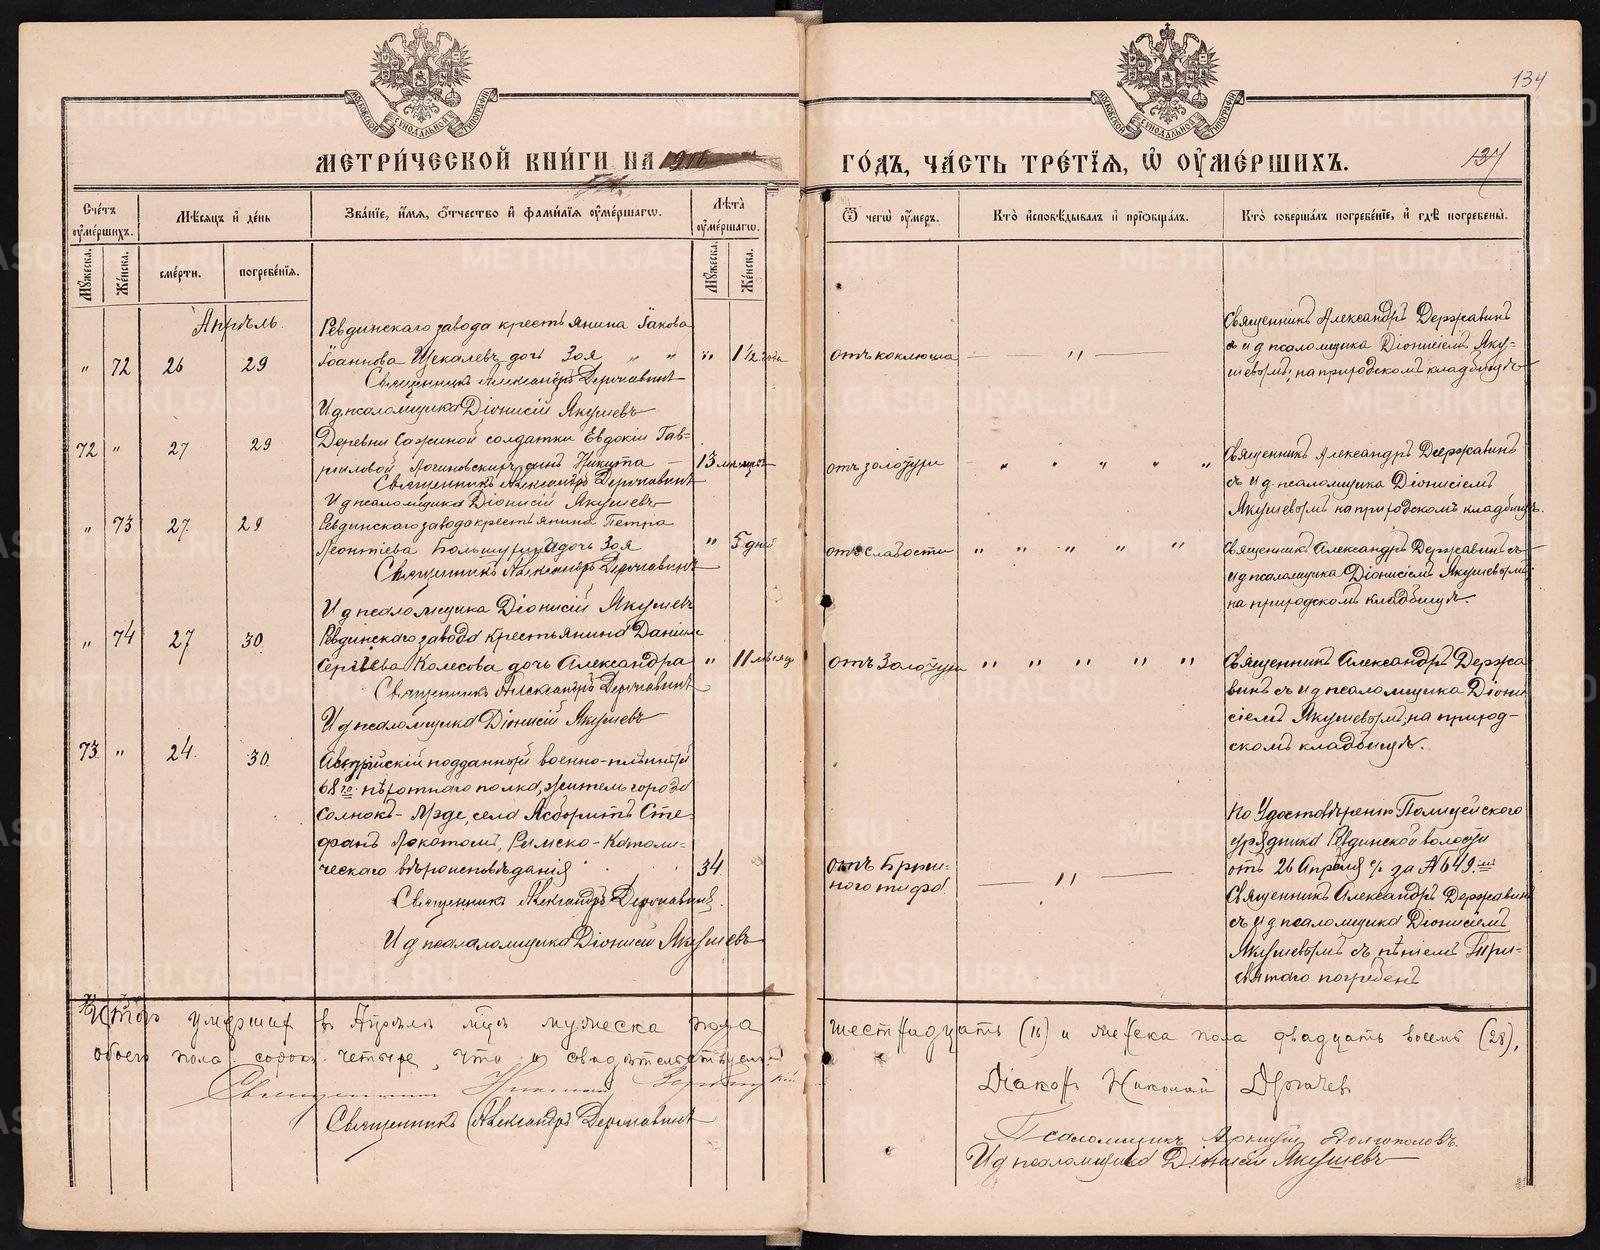 134
МОСКОВСКОЙ СУНОДАЛЬНОЙ ТИПОГРАФІИ
МОСКОВСКОЙ СУНОДАЛЬНОЙ ТИПОГРАФІИ
МЕТРИ́ЧЕСКОЙ КНИ́ГИ НА 1916
ГО́ДЪ, ЧА́СТЬ ТРЕ́ТЇѦ, Ѽ ОУ҆МЕ́РШИХЪ.
137
Сче́тъ оу҆ме́ршихъ.
Мѣ́сѧцъ и҆ де́нь
Зва́нїе, и҆́мѧ, ѻ҆́тчество и҆ фами́лїѧ оу҆ме́ршагѡ.
Лѣ́та оу҆ме́ршагѡ.
Ѿ чегѡ̀ оу҆́меръ.
Кто̀ и҆сповѣ́дывалъ и҆ прїѻбща́лъ.
Кто̀ соверша́лъ погребе́нїе, и҆ гдѣ̀ погребены̀.
Мꙋ́жеска.
Же́нска.
сме́рти.
погребе́нїѧ.
Мꙋ́жеска.
Же́нска.
Апрѣль.
Ревдинскаго завода крестьянина Іакова
" 72 26 29 Іоаннова Щекалевъ дочь Зоя " " " 1 1/2 года
Священникъ Александръ Державинъ
И д псаломщика Діонисій Якушевъ
отъ коклюша
— " —
Священникъ Александръ Державинъ
съ и д псаломщика Діонисіемъ Яку-
шевымъ, на приходскомъ кладбищѣ
72 " 27 29 Деревни солдатки Евдокіи Гав-
риловой сынъ Никита — 13
Священникъ Александръ Державинъ
И д псаломщика Діонисій Якушевъ
отъ золотухи
" " " " "
Священникъ Александръ Державинъ
съ и д псаломщика Діонисіемъ
Якушевымъ на приходскомъ кладбищѣ.
" 73 27 29 Ревдинскаго завода крестьянина Петра
Леонтіева дочь Зоя " 5 дней
Священникъ Александръ Державинъ
И д псаломщика Діонисій Якушевъ
отъ слабости
" " " " "
Священникъ Александръ Державинъ съ
и д псаломщика Діонисіемъ Якушевымъ
на приходскомъ кладбищѣ.
" 74 27 30 Ревдинскаго завода крестьянина Даніила
Сергіева Колесова дочь Александра " 11 мѣсяц
Священникъ Александръ Державинъ
И д псаломщика Діонисій Якушевъ
отъ Золотухи
" " " " "
Священникъ Александръ Держа
винъ съ и д псаломщика Діони
сіемъ Якушевымъ, на приход-
скомъ кладбищѣ.
73 " 24 30 Австрійскій подданный военно-плѣнный
68го пѣхотнаго полка, житель города
Солнокъ- село Сте
фанъ Римско-Католи-
ческаго вѣроисповѣданія 34
Священникъ Александръ Державинъ.
И д псаломщика Діонисій Якушевъ
отъ Брюш-
ного тифа
— " —
По Удостовѣренію Полицейского
урядника Ревдинской волости
отъ 26 Апрѣля с/г за № 649
Священникъ Александръ Державинъ
съ и д псаломщика Діонисіемъ
Якушевымъ съ пѣніемъ Три-
святаго погребенъ
Итого умершихъ въ Апрѣлѣ мцѣ мужеска пола
шестнадцать (16) и женска пола двадцать восемь (28),
обоего пола сорокъ четыре, что и свидѣтельствуемъ
Священникъ
Діаконъ Николай Дягачев
Священникъ Александръ Державинъ
Псаломщикъ Долгополовъ.
И д псаломщика Діонисій Якушевъ
METRIKI.GASO-URAL.RU